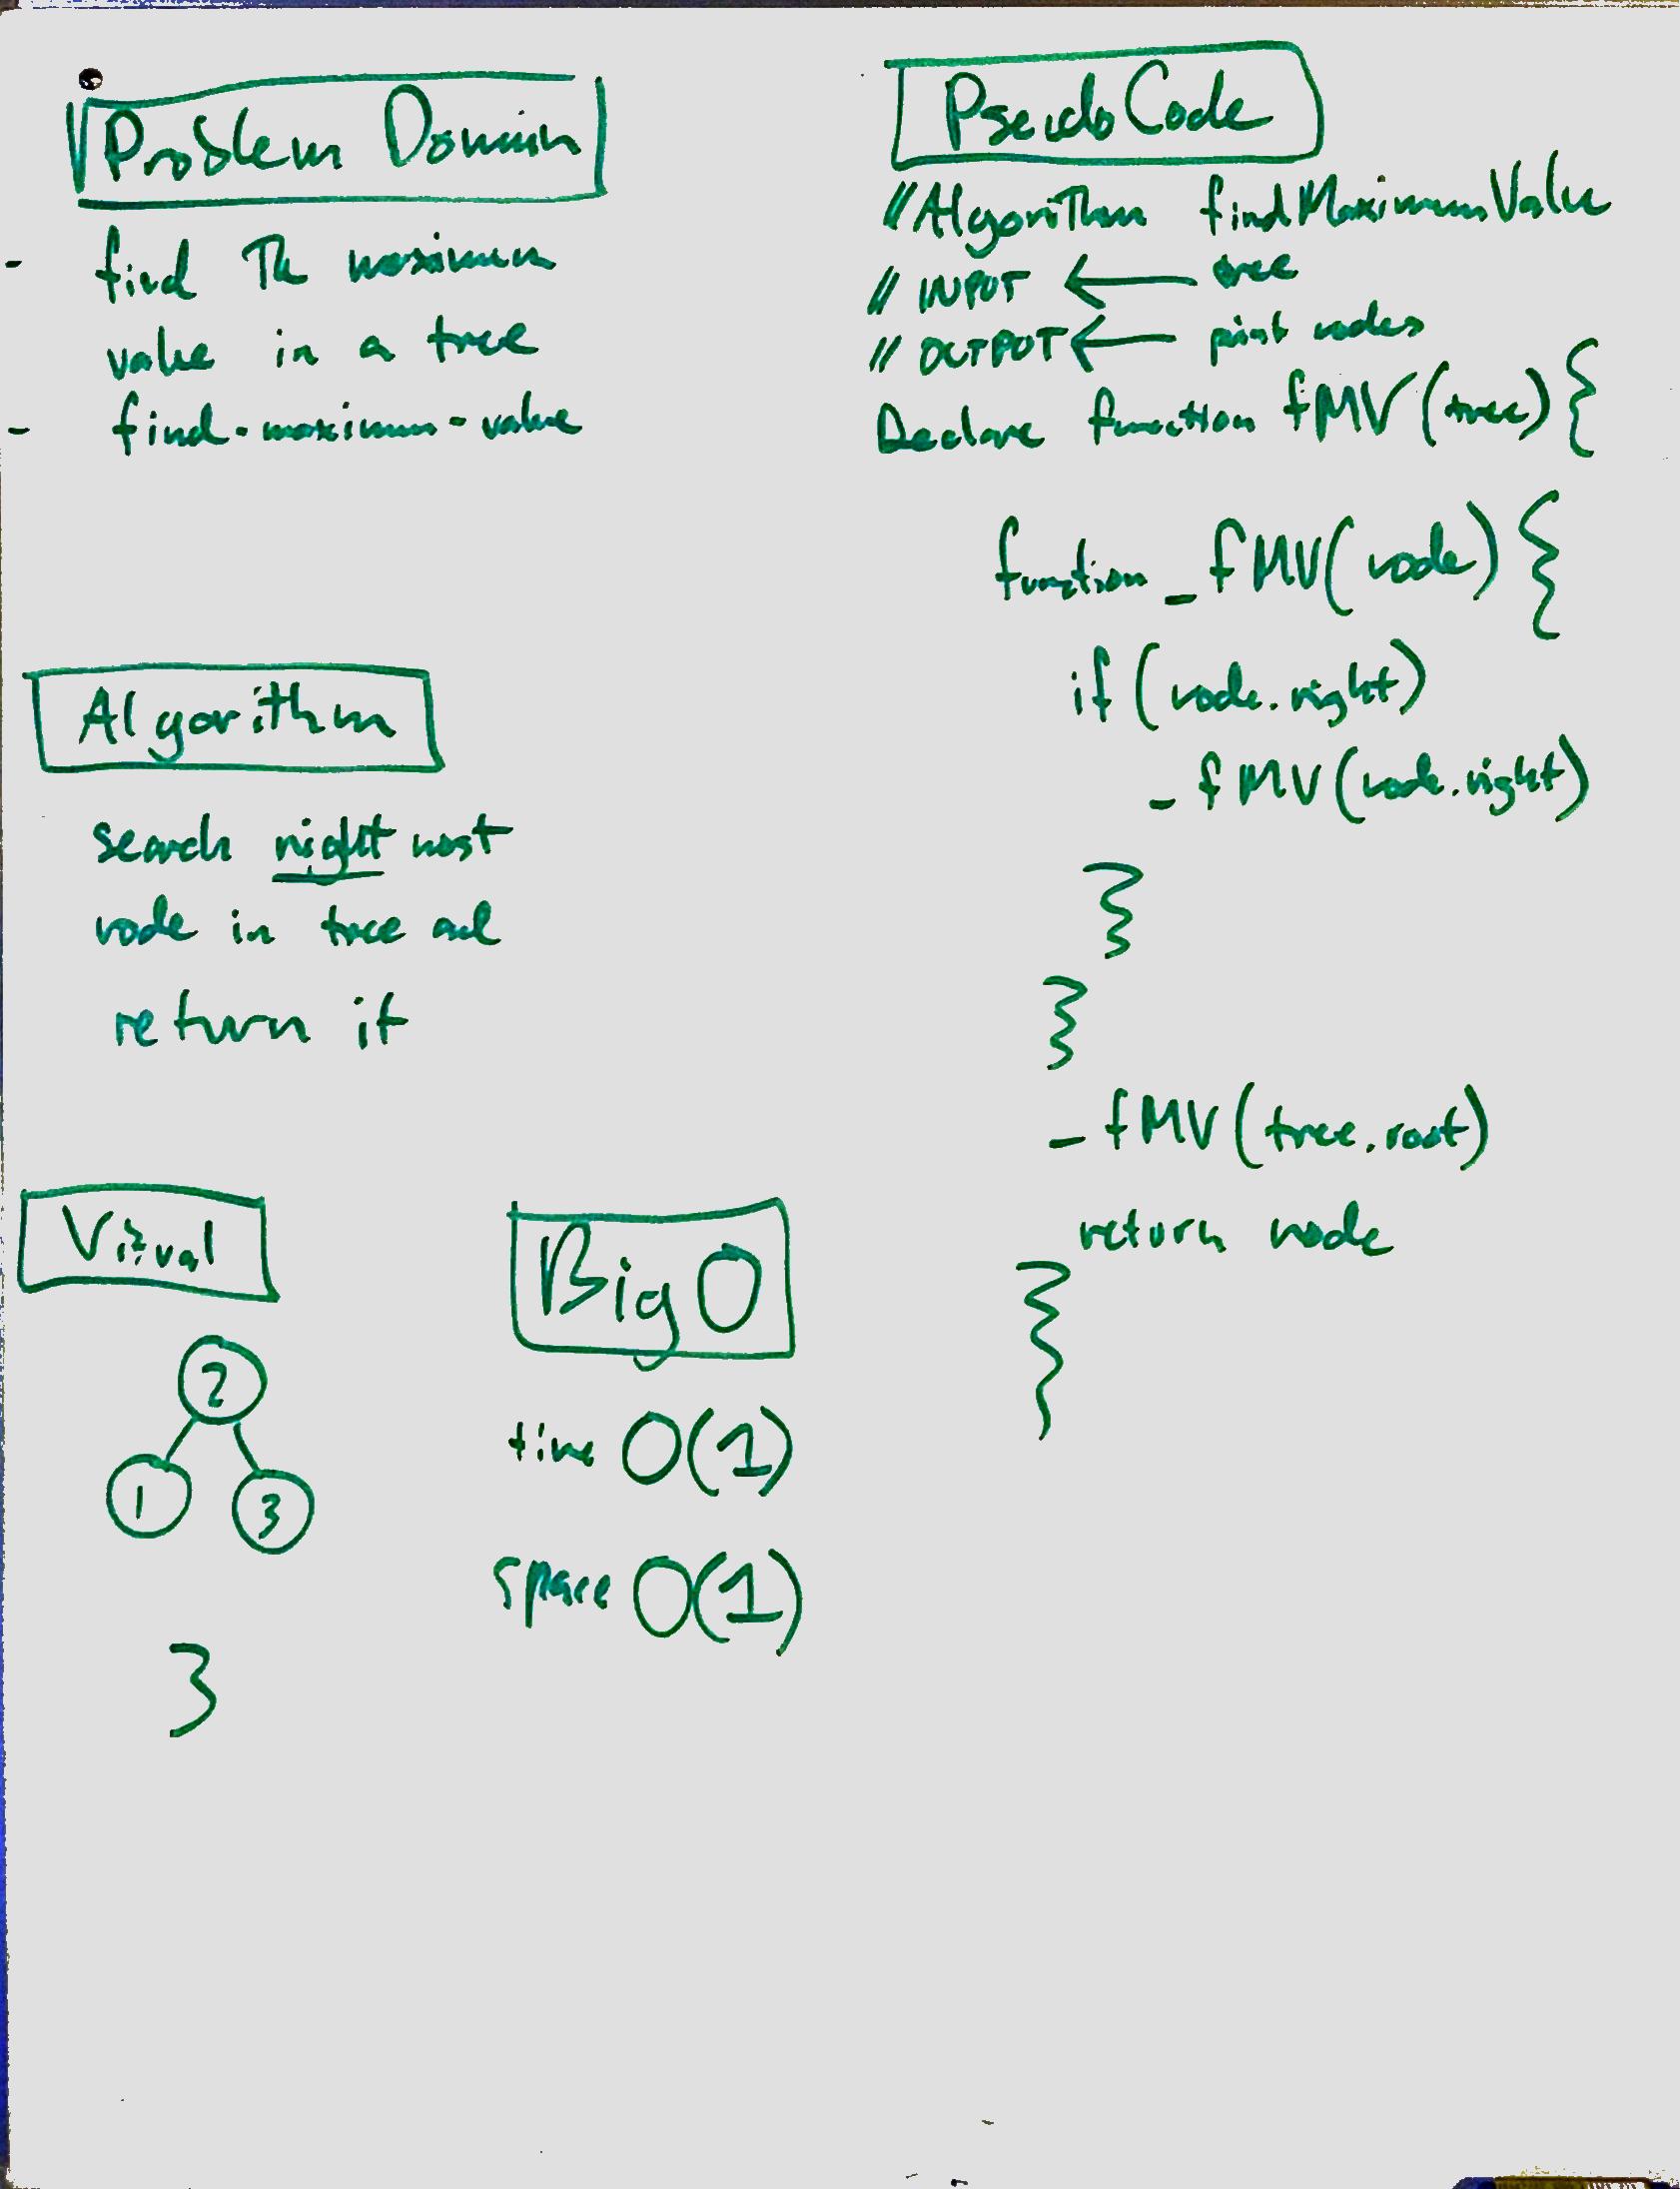 Problem Domain
- find The maximum
value in a tree
- find-maximum-value
Algorithm
search right most
node in tree and
return it
Visual
2
1 3
3
Big O
time O(1)
space O(1)
PseudoCode
//Algorithm findMaximumValue
// INPUT ← tree
// OUTPUT ← print nodes
Declare function fMV(tree) {
function _fMV(node) {
if (node.right)
_fMV(node.right)
}
}
_fMV(tree.root)
return node
}